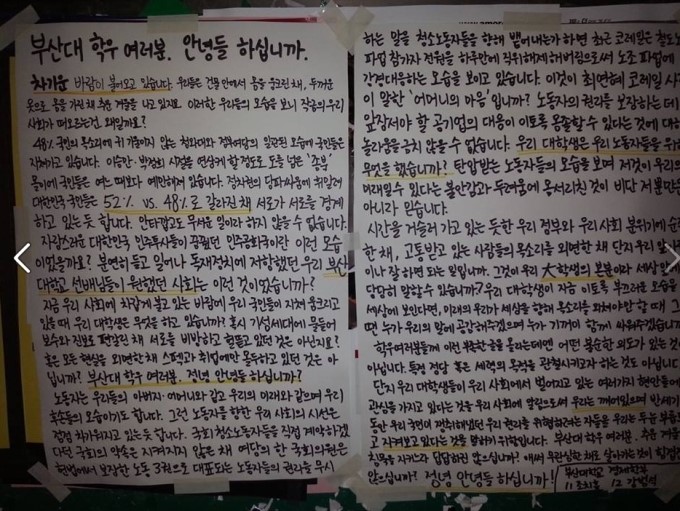 부산대 학우 여러분. 안녕들 하십니까.
차가운 바람이 불어오고 있습니다. 우리들은 건물 안에서 몸을 웅크린 채, 두꺼운
옷으로 몸을 가린 채 추운 겨울을 나고 있지요. 이러한 우리들의 모습을 보니 작금의 우리
사회가 떠오르는건, 왜일까요?
48% 국민의 목소리에 귀 기울이지 않는 청와대와 집권여당의 일관된 모습에 국민들은
지쳐가고 있습니다. 이승만·박정희 시절을 연상케 할 정도로 도를 넘은 '종북'
몰이에 국민들은 어느 때보다 예민해져 있습니다. 정치권의 당파싸움에 휘말려
대한민국 국민들은 52% vs. 48%로 갈라진 채 서로가 서로를 경계
하고 있는 듯 합니다. 안타깝고도 무서운 일이라 하지 않을 수 없습니다.
자랑스러운 대한민국 민주투사들이 꿈꿨던 민주공화국이란 이런 모습
이었을까요? 분연히 들고 일어나 독재정치에 저항했던 우리 부산
대학교 선배님들이 원했던 사회는 이런 것이었습니까?
지금 우리 사회에 차갑게 불고 있는 바람에 우리 국민들이 지쳐 웅크리고
있을 때 우리 대학생은 무엇을 하고 있습니까? 혹시 기성세대에 물들어
보수와 진보로 편갈린 채 서로를 비방하고 헐뜯고 있던 것은 아닌지요?
혹은 모든 현실을 외면한 채 스펙과 취업에만 몰두하고 있던 것은 아
닙니까? 부산대 학우 여러분. 정녕 안녕들 하십니까?
노동자는 우리들의 아버지·어머니와 같고 우리의 미래와 같으며 우리
후손들의 모습이기도 합니다. 그런 노동자를 향한 우리 사회의 시선은
점점 차가워지고 있는 듯 합니다. 국회 청소노동자들을 직접 계약하겠
다던 국회의 약속은 지켜지지 않은 채 여당의 한 국회의원은
헌법에서 보장한 노동 3권으로 대표되는 노동자들의 권리를 무시
하는 말을 청소노동자들을 향해 뱉어내는가 하면 최근 코레일은 철도노
파업 참가자 전원을 하루만에 직위해제 해버림으로써 노조 파업에
강경대응하는 모습을 보이고 있습니다. 이것이 최연혜 코레일 사
이 말한 '어머니의 마음'입니까? 노동자의 권리를 보장하는 데
앞장서야 할 공기업의 대응이 이토록 옹졸할 수 있다는 것에 대해
놀라움을 금치 않을 수 없습니다. 우리 대학생은 우리 노동자들을 위해
무엇을 했습니까? 탄압받는 노동자들의 모습을 보며 저것이 우리의
미래일 수 있다는 불안감과 두려움에 웅크리진 것이 비단 저 뿐만은
아니라 믿습니다.
시간을 거슬러 가고 있는 듯한 우리 정부와 우리 사회 분위기에 순
한 채, 고통받고 있는 사람들의 목소리를 외면한 채 단지 우리 일
이나 잘 하면 되는 일입니까. 그것이 우리 大학생의 본분이라 세상
당당히 말할 수 있습니까? 우리 대학생이 자금 이토록 부끄러운 모습을
세상에 보인다면, 미래의 우리가 세상을 향해 목소리를 외쳐야만 할 때 그
땐 누가 우리의 말에 공감해주겠으며 누가 기꺼이 함께 싸워주겠습니까
학우여러분들께 이런 부족한 글을 올리는데엔 어떤 불순한 의도가 있는 것
아닙니다. 특정 정당 혹은 세력의 목적을 관철시키고자 하는 것도 아닙니다.
단지 우리 대학생들이 우리 사회에서 벌어지고 있는 여러가지 현안들에
관심을 가지고 있다는 것을 우리 사회에 알림으로써 우리는 깨어있으며 반세기
동안 우리 국민이 쟁취해왔던 우리 권리를 위협하려는 자들을 우리는 두 눈 부릅
고 지켜보고 있다는 것을 말하기 위함입니다. 부산대 학우 여러분. 추운 겨울
침묵을 지키느라 답답하진 않으십니까? 애써 무관심한 채로 살아가는 것이 힘겹진
않으십니까? 정녕 안녕들 하십니까!
부산대학교 경제학과
11 조치흠 12 강범석